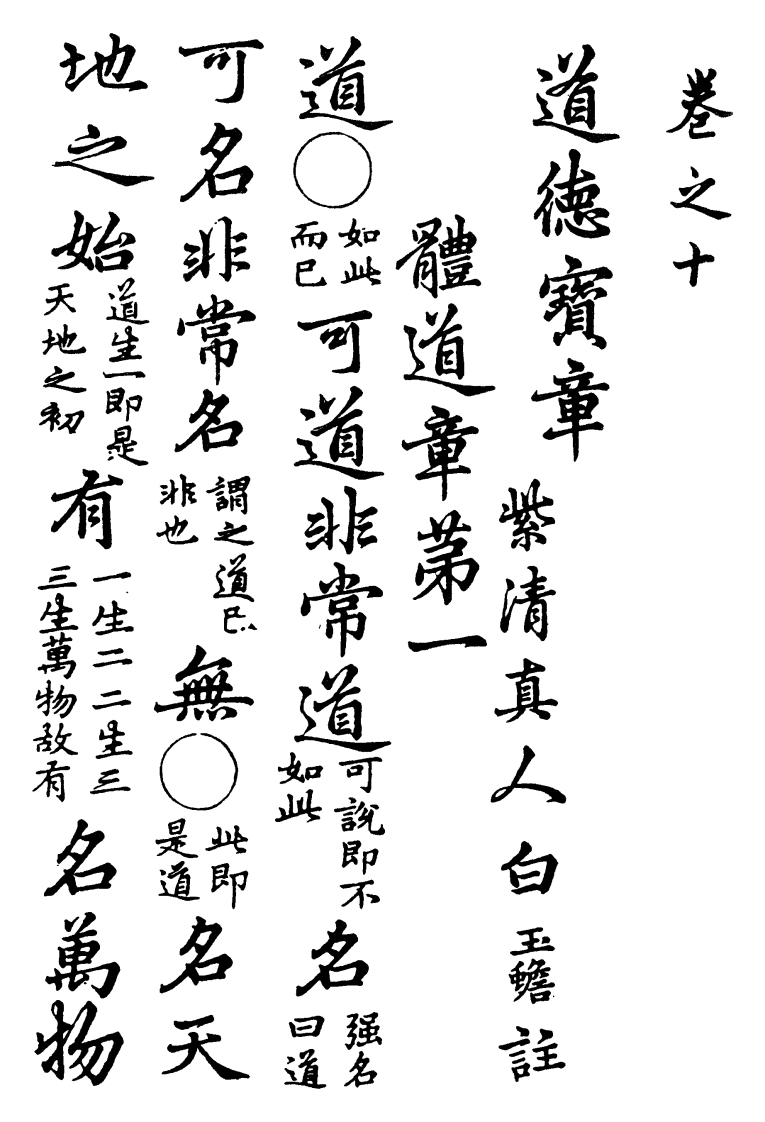 卷之十
道德寶章
紫清真人白玉蟾註
體道章第一
道〇如此而已可道非常道可說即不如此名强名曰道
可名非常名謂之道已非也無〇此即是道名天
地之始道生一即是天地之初有一生二二生三三生萬物故有名萬物